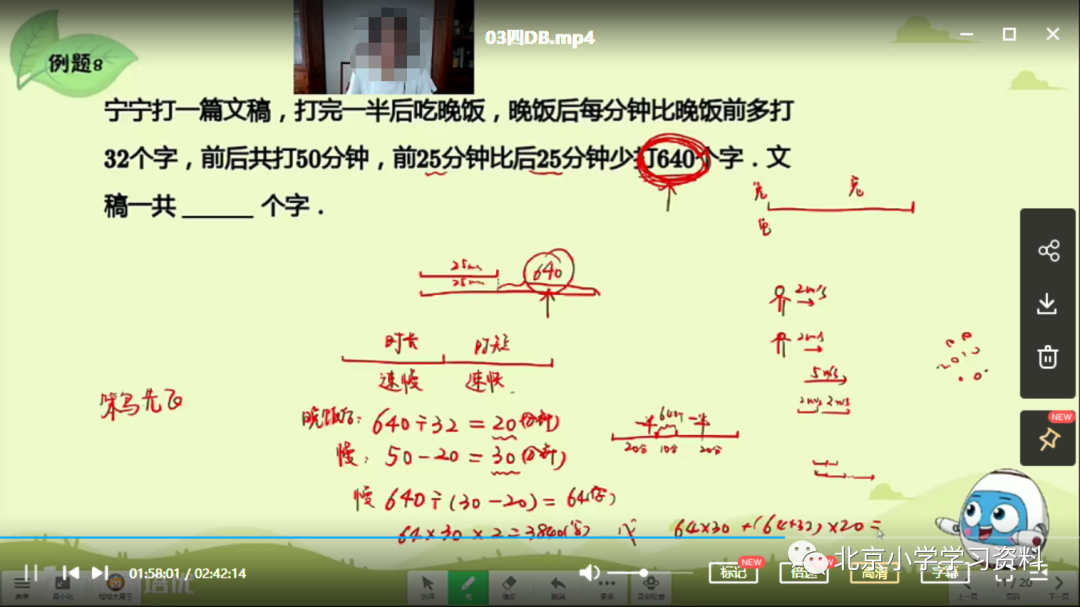 03四DB.mp4
例题8
宁宁打一篇文稿，打完一半后吃晚饭，晚饭后每分钟比晚饭前多打
32个字，前后共打50分钟，前25分钟比后25分钟少打640个字．文
稿一共 ______ 个字．
兔
兔
龟
25min
25min
640
2m/s
2m/s
5m/s
2m/s 2m/s
时长
时短
速慢
速快
笨鸟先飞
晚饭后：640÷32=20(分钟)
慢：50-20=30(分钟)
慢 640÷(30-20)=64(字)
64×30×2=3840(字)
64×30+(64+32)×20=
一半 640个 一半
20分 10分 20分
NEW
01:58:01 / 02:42:14
标记
NEW
倍速
NEW
高清
字幕
北京小学学习资料
11 / 20